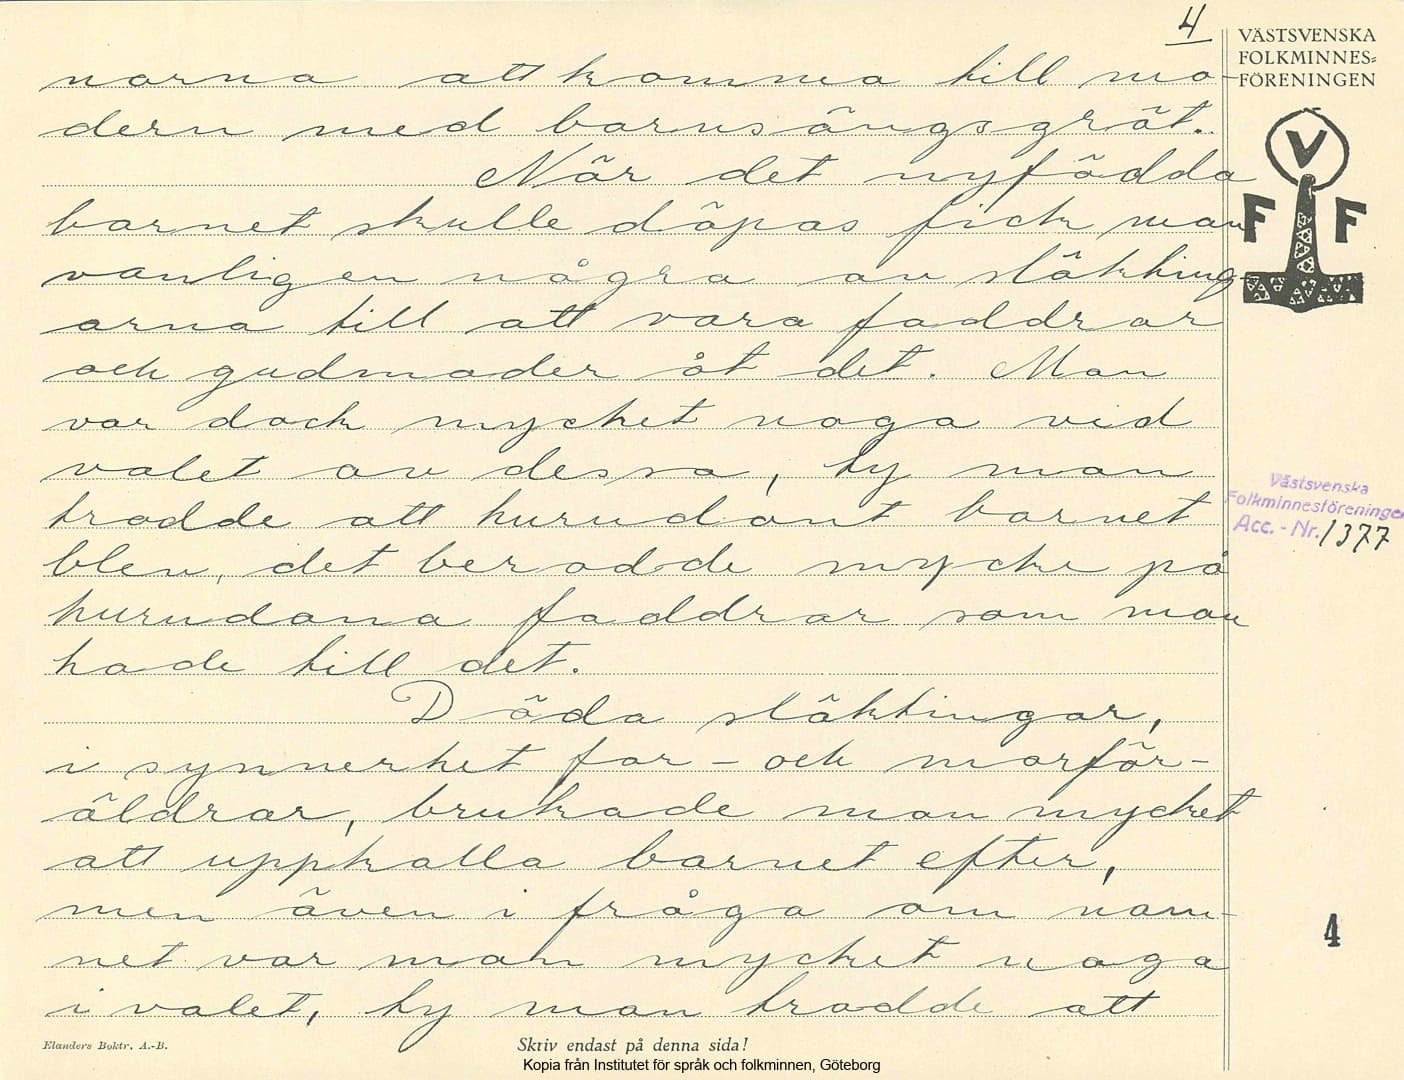 4
VÄSTSVENSKA
FOLKMINNES-
FÖRENINGEN
V
F F
norna att komma till mo-
dern med barnsängsgröt.
När det nyfödda
barnet skulle döpas fick man
vanligen några av släkting-
arna till att vara faddrar
och gudmoder åt det. Man
var dock mycket noga vid
valet av dessa, ty man
trodde att hurudant barnet
blev, det berodde mycke på
hurudana faddrar som man
hade till det.
Döda släktingar,
i synnerhet far- och morför-
äldrar, brukade man mycket
att uppkalla barnet efter,
men även i fråga om nam-
net var man mycket noga
i valet, ty man trodde att
Västsvenska
Folkminnesföreningen
Acc. - Nr. 1377
4
Elanders Boktr. A.-B.
Skriv endast på denna sida!
Kopia från Institutet för språk och folkminnen, Göteborg